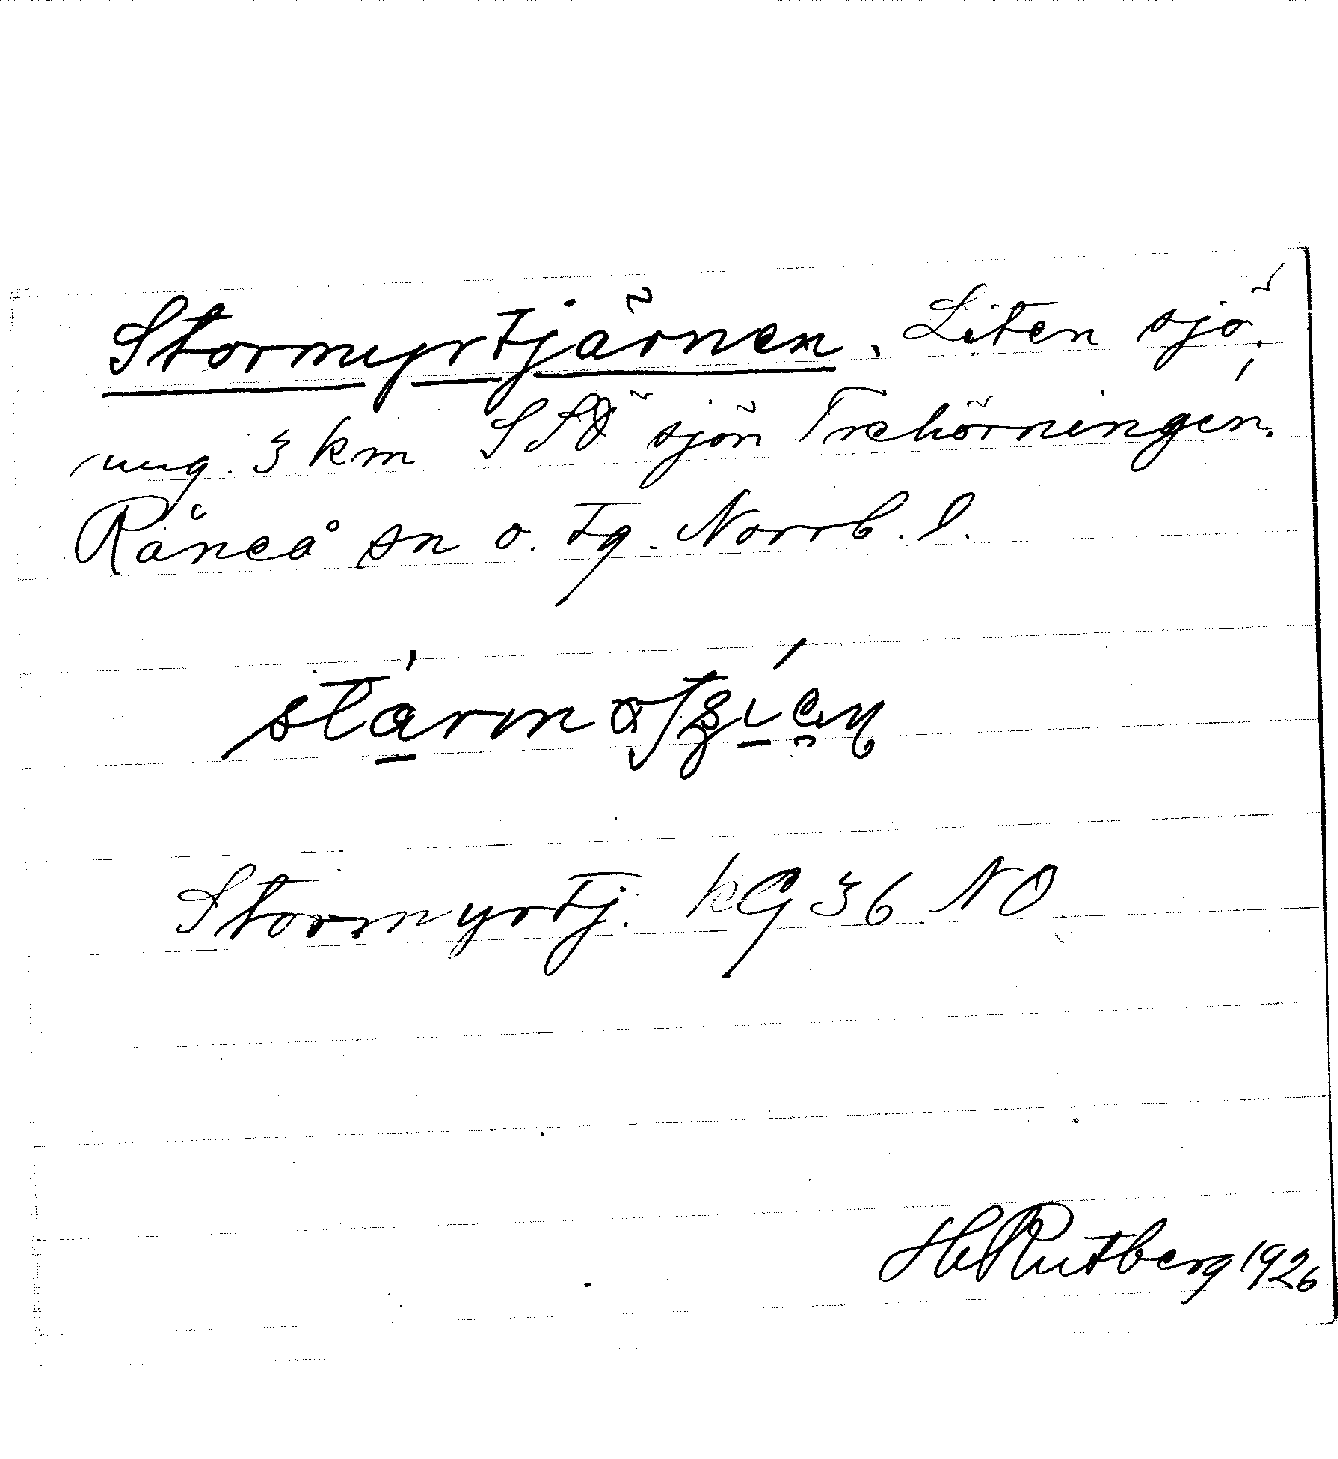 Stormyrtjärnen. Liten sjö,
ung. 3 km SSÖ sjön Trehörningen.
Råneå sn o. tg. Norrb. l.
Stormyrtj. kG 36 NO
H Rutberg 1926